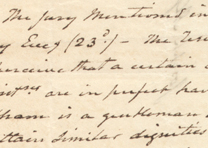 The Jury Mentioned in
by Eucg (23d) - The Tes
perceive that a certain
are in perfect har
ham is a gentleman
ttain similar dignities